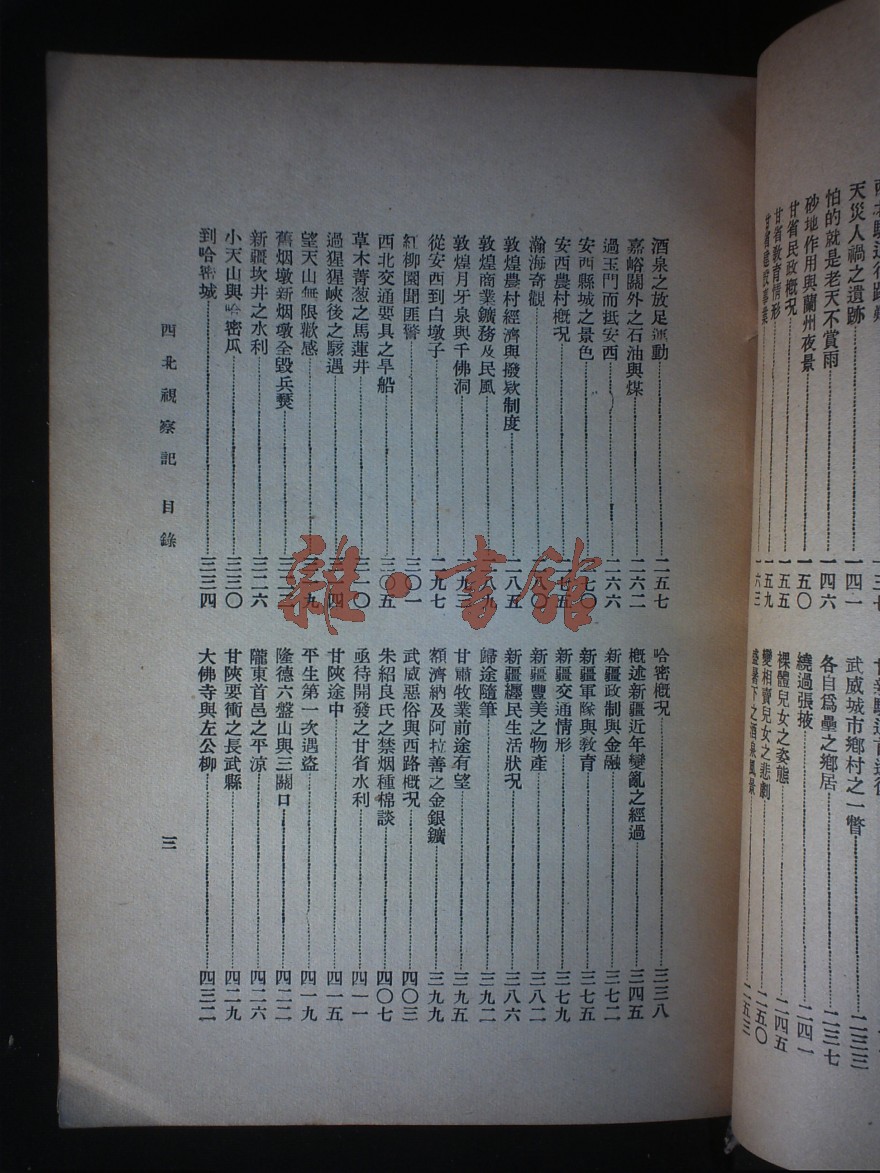 天災人禍之遺跡 一四一
怕的就是老天不賞雨 一四六
砂地作用與蘭州夜景 一五〇
甘省民政概況 一五五
甘省教育情形 一五九
甘省建設事業 一六三
武威城市鄉村之一瞥 二三三
各自爲壘之鄉居 二三七
繞過張掖 二四一
裸體兒女之姿態 二四五
變相賣兒女之悲劇 二五〇
盛暑下之酒泉風景 二五三
酒泉之放足運動 二五七
嘉峪關外之石油與煤 二六二
過玉門而抵安西 二六六
安西縣城之景色 二七〇
安西農村概況 二七五
瀚海奇觀 二八〇
敦煌農村經濟與撥欵制度 二八五
敦煌商業鑛務及民風 二八九
敦煌月牙泉與千佛洞 二九三
從安西到白墩子 二九七
紅柳園聞匪警 三〇一
西北交通要具之旱船 三〇五
草木菁葱之馬蓮井 三一〇
過猩猩峽後之駭遇 三一四
望天山無限歡感 三一九
舊烟墩新烟墩全毀兵燹 三二二
新疆坎井之水利 三二六
小天山與哈密瓜 三三〇
到哈密城 三三四
哈密概況 三三八
概述新疆近年變亂之經過 三四五
新疆政制與金融 三七二
新疆軍隊與教育 三七五
新疆交通情形 三七九
新疆豐美之物產 三八二
新疆纒民生活狀況 三八六
歸途隨筆 三九二
甘肅牧業前途有望 三九五
額濟納及阿拉善之金銀鑛 三九九
武威惡俗與西路概況 四〇三
朱紹良氏之禁烟種棉談 四〇七
亟待開發之甘省水利 四一一
甘陝途中 四一五
平生第一次遇盜 四一九
隆德六盤山與三關口 四二二
隴東首邑之平涼 四二六
甘陝要衝之長武縣 四二九
大佛寺與左公柳 四三二
西北視察記 目錄
三
雜·書館